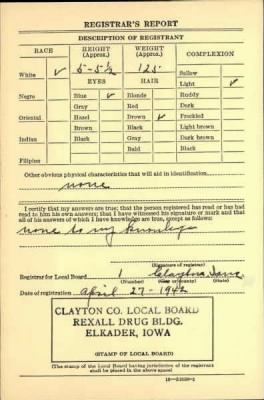 REGISTRAR'S REPORT
DESCRIPTION OF REGISTRANT
RACE HEIGHT (Approx.) WEIGHT (Approx.) COMPLEXION
White ✓ 5-5½ 125 Sallow
EYES HAIR Light ✓
Negro Blue ✓ Blonde Ruddy
Gray Red Dark
Oriental Hazel Brown ✓ Freckled
Brown Black Light brown
Indian Black Gray Dark brown
Bald Black
Filipino
Other obvious physical characteristics that will aid in identification
none
I certify that my answers are true; that the person registered has read or has had
read to him his own answers; that I have witnessed his signature or mark and that
all of his answers of which I have knowledge are true, except as follows:
none to my knowledge
(Signature of registrar)
Registrar for Local Board 1 Clayton Iowa
(Number) (City or county) (State)
Date of registration April 27-1942
CLAYTON CO. LOCAL BOARD
REXALL DRUG BLDG.
ELKADER, IOWA
(STAMP OF LOCAL BOARD)
(The stamp of the Local Board having jurisdiction of the registrant
shall be placed in the above space)